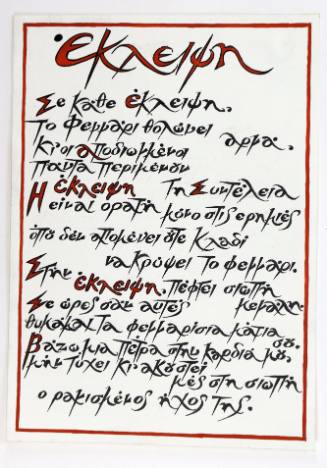 Έκλειψη
Σε κάθε έκλειψη,
Το Φεγγάρι θολώνει αργά.
Κι οι αποδιωγμένοι
Πάντα περιμένουν
Η έκλειψη Τη Συντέλεια
Η είναι ορατή μόνο στις ερημιές
όπου δεν απομένει ούτε Κλαδί
να κρύψει Το φεγγάρι.
Στην έκλειψη, πέφτει σιωπή
Σε ώρες σαν αυτές μεγάλη.
Θυμάμαι Τα φεγγαρίσια μάτια σου.
Βάζω μια πέτρα στην καρδιά μου,
μήν τύχει κι ακουστεί
μές στη σιωπή
ο ραγισμένος ήχος Της.